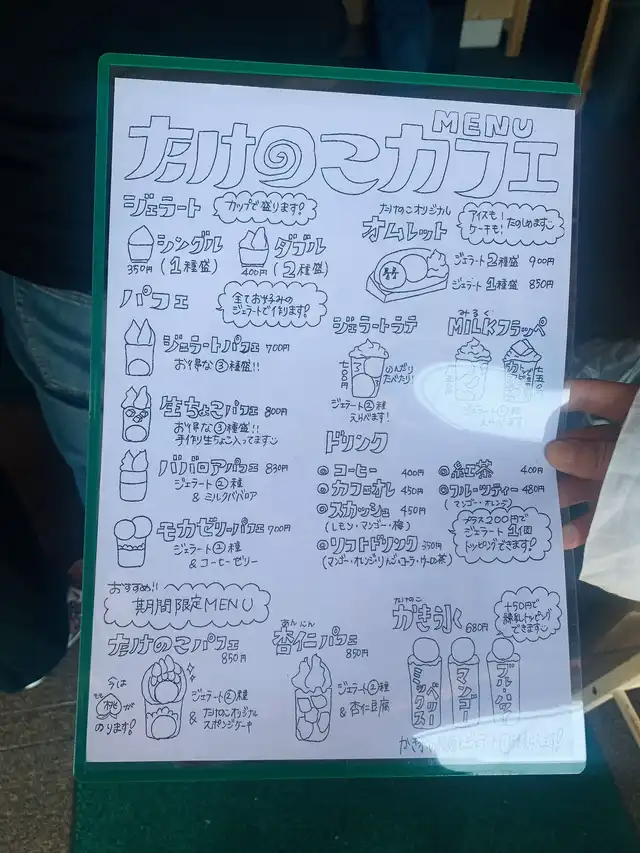 MENU
たけのこカフェ
ジェラート
カップで盛ります!
シングル
350円
(1種盛)
ダブル
400円
(2種盛)
たけのこオリジナル
オムレット
アイスも!
ケーキも!
たのしめます
ジェラート2種盛 900円
ジェラート1種盛 850円
パフェ
全てお好みの
ジェラートで作ります!
ジェラートパフェ 700円
お得な③種盛!!
生ちょこパフェ 800円
お得な③種盛!!
手作り生ちょこ入ってます
ババロアパフェ 830円
ジェラート②種
& ミルクババロア
モカゼリーパフェ 700円
ジェラート②種
& コーヒーゼリー
ジェラートラテ
七〇〇円
のんだり
たべたり!
ジェラート②種
えらべます!
みるく
MILKフラッペ
ジェラート①種
えらべます!
ドリンク
◎コーヒー 400円
◎カフェオレ 450円
◎スカッシュ 450円
(レモン・マンゴー・梅)
◎ソフトドリンク 350円
(マンゴー・オレンジ・りんご・コーラ・ウーロン茶)
◎紅茶 400円
◎フルーツティー 480円
(マンゴー・オレンジ)
プラス200円で
ジェラート1個
トッピングできます!
おすすめ!!
期間限定MENU
たけのこパフェ
850円
今は
もも
桃が
のります!
ジェラート②種
& たけのこオリジナル
スポンジケーキ
あんにん
杏仁パフェ
850円
ジェラート②種
& 杏仁豆腐
たけのこ
かき氷 680円
+50円で
練乳トッピング
できます
ベリー
ミックス
マンゴー
ブルーハワイ